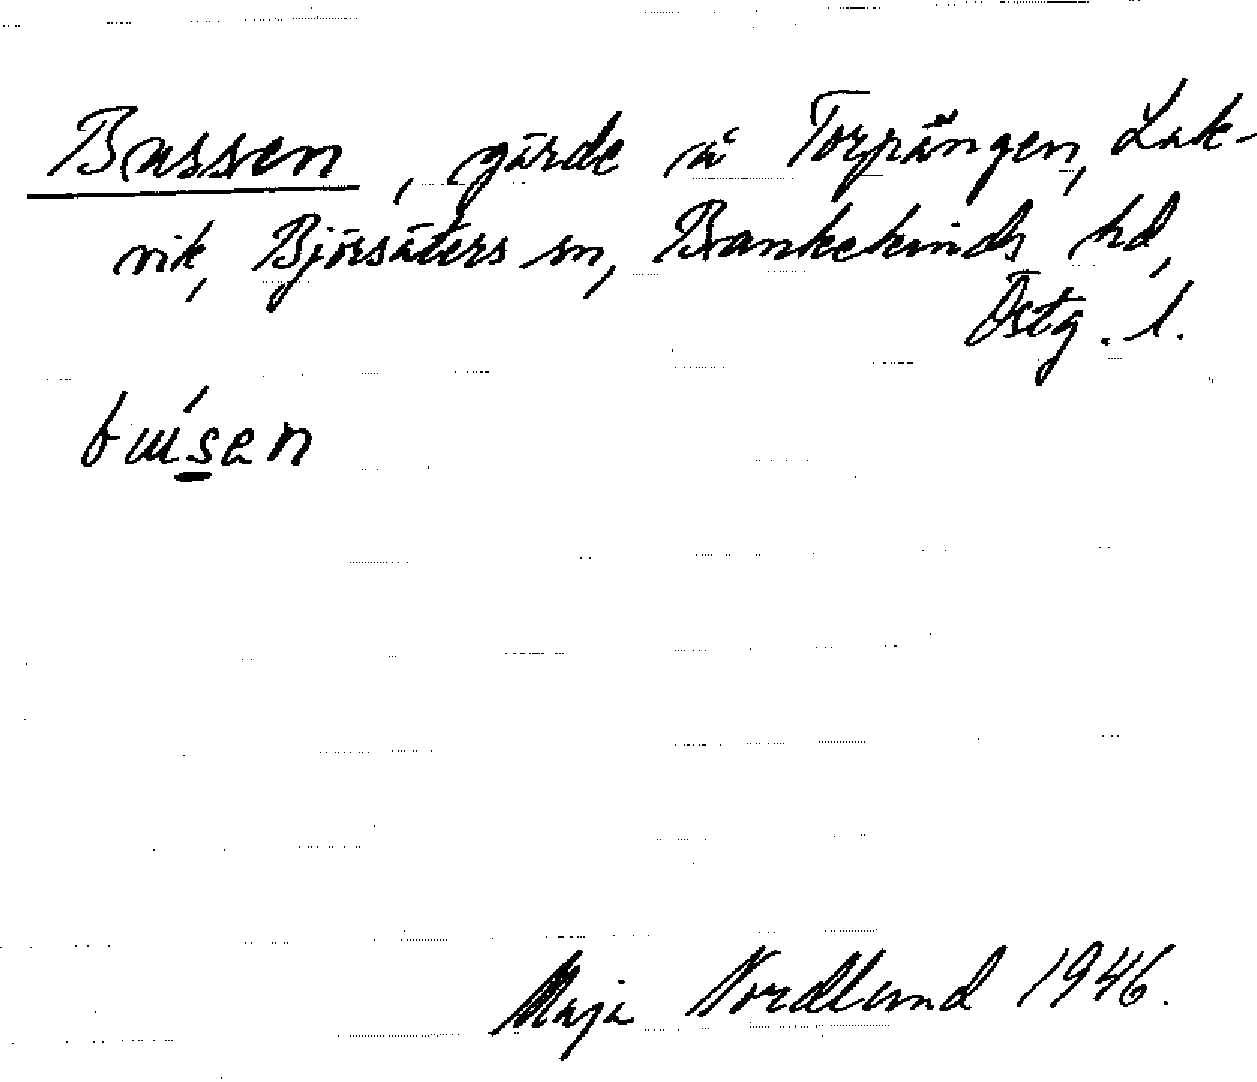 Bussen, gärde å Torpängen, Lak-
vik, Björsäters sn, Bankekinds hd,
Östg. l.
búsen
Maja Nordlund 1946.